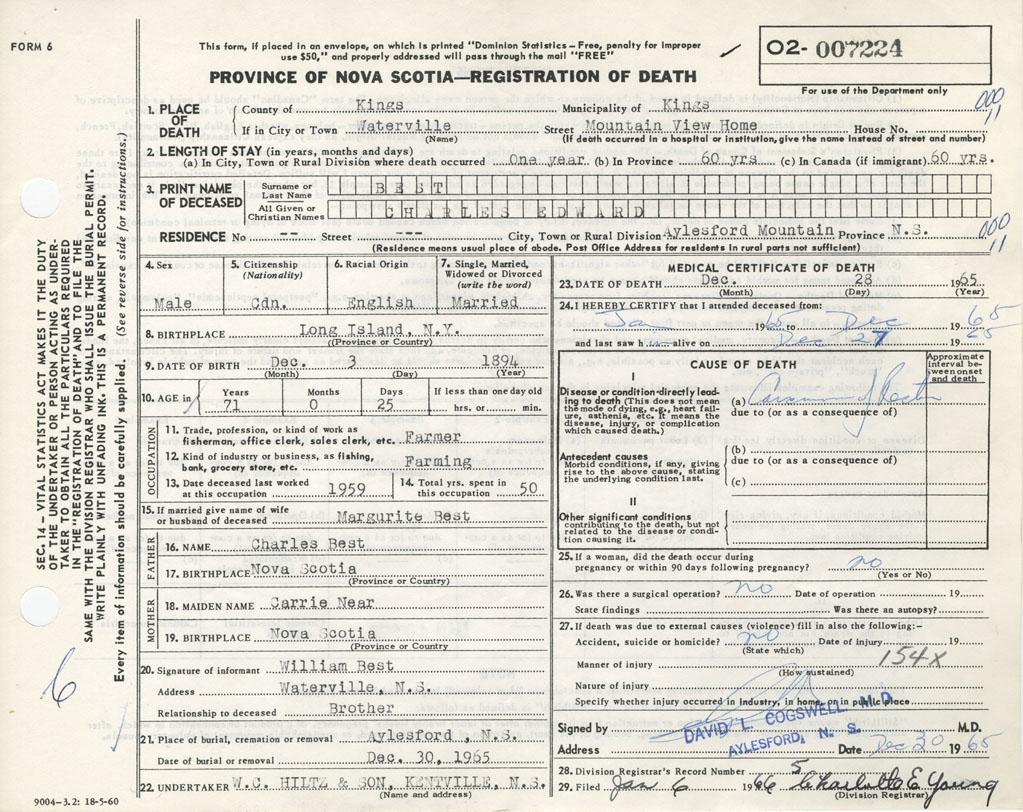 FORM 6
This form, if placed in an envelope, on which is printed "Dominion Statistics – Free, penalty for improper
use $50," and properly addressed will pass through the mail "FREE"
02- 007224
For use of the Department only
PROVINCE OF NOVA SCOTIA—REGISTRATION OF DEATH
SEC. 14 – VITAL STATISTICS ACT MAKES IT THE DUTY
OF THE UNDERTAKER OR PERSON ACTING AS UNDER-
TAKER TO OBTAIN ALL THE PARTICULARS REQUIRED
IN THE "REGISTRATION OF DEATH" AND TO FILE THE
SAME WITH THE DIVISION REGISTRAR WHO SHALL ISSUE THE BURIAL PERMIT.
WRITE PLAINLY WITH UNFADING INK. THIS IS A PERMANENT RECORD.
Every item of information should be carefully supplied. (See reverse side for instructions.)
1. PLACE OF DEATH
County of Kings Municipality of Kings 000 11
If in City or Town Waterville Street Mountain View Home House No.
(Name) (If death occurred in a hospital or institution, give the name instead of street and number)
2. LENGTH OF STAY (in years, months and days)
(a) In City, Town or Rural Division where death occurred One year (b) In Province 60 yrs (c) In Canada (if immigrant) 60 yrs.
3. PRINT NAME OF DECEASED
Surname or Last Name BEST
All Given or Christian Names CHARLES EDWARD
RESIDENCE No -- Street --- City, Town or Rural Division Aylesford Mountain Province N.S. 000 11
(Residence means usual place of abode. Post Office Address for residents in rural parts not sufficient)
4. Sex Male
5. Citizenship (Nationality) Cdn.
6. Racial Origin English
7. Single, Married, Widowed or Divorced (write the word) Married
8. BIRTHPLACE Long Island, N.Y.
(Province or Country)
9. DATE OF BIRTH Dec. 3 1894
(Month) (Day) (Year)
10. AGE in Years 71 Months 0 Days 25 If less than one day old hrs. or min.
OCCUPATION
11. Trade, profession, or kind of work as
fisherman, office clerk, sales clerk, etc. Farmer
12. Kind of industry or business, as fishing,
bank, grocery store, etc. Farming
13. Date deceased last worked at this occupation 1959
14. Total yrs. spent in this occupation 50
15. If married give name of wife
or husband of deceased Margurite Best
FATHER
16. NAME Charles Best
17. BIRTHPLACE Nova Scotia
(Province or Country)
MOTHER
18. MAIDEN NAME Carrie Near
19. BIRTHPLACE Nova Scotia
(Province or Country
20. Signature of informant William Best
Address Waterville, N.S.
Relationship to deceased Brother
21. Place of burial, cremation or removal Aylesford, N.S.
Date of burial or removal Dec. 30, 1965
22. UNDERTAKER W.C. HILTZ & SON, KENTVILLE, N.S.
(Name and address)
6
9004-3.2: 18-5-60
MEDICAL CERTIFICATE OF DEATH
23. DATE OF DEATH Dec. 28 1965
(Month) (Day) (Year)
24. I HEREBY CERTIFY that I attended deceased from:
Jan 1965 to Dec 1965
and last saw h im alive on Dec 27 1965
CAUSE OF DEATH
Approximate interval between onset and death
I
Disease or condition directly leading to death (This does not mean
the mode of dying, e.g., heart failure, asthenia, etc. It means the
disease, injury, or complication
which caused death.)
(a)
due to (or as a consequence of)
Antecedent causes
Morbid conditions, if any, giving
rise to the above cause, stating
the underlying condition last.
(b)
due to (or as a consequence of)
(c)
II
Other significant conditions
contributing to the death, but not
related to the disease or condition causing it.
25. If a woman, did the death occur during
pregnancy or within 90 days following pregnancy? no
(Yes or No)
26. Was there a surgical operation? no Date of operation 19
State findings Was there an autopsy?
27. If death was due to external causes (violence) fill in also the following:–
Accident, suicide or homicide? no Date of injury 19
(State which)
154X
Manner of injury
(How sustained)
Nature of injury
Specify whether injury occurred in Industry, in home, or in public place
Signed by DAVID L. COGSWELL M.D. M.D.
Address AYLESFORD, N. S. Date Dec 30 1965
28. Division Registrar's Record Number 5
29. Filed Jan 6 1966 Charlotte E Young
(Division Registrar)